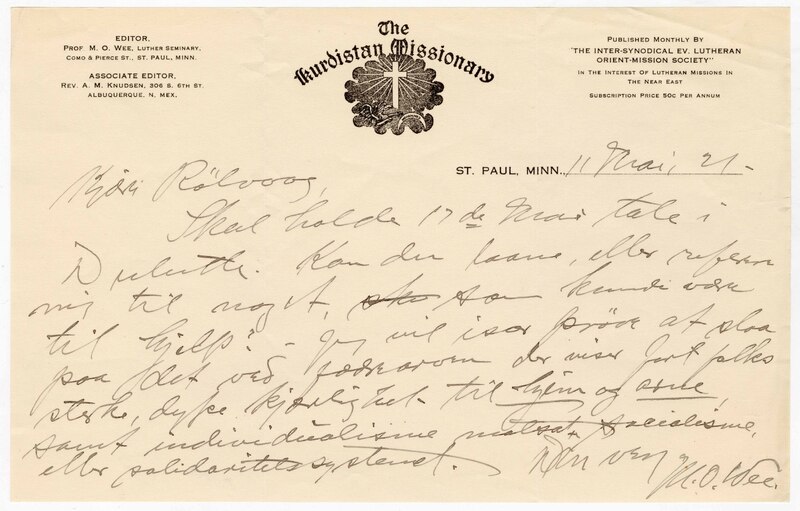 EDITOR,
PROF. M. O. WEE, LUTHER SEMINARY,
COMO & PIERCE ST., ST. PAUL, MINN.
ASSOCIATE EDITOR,
REV. A. M. KNUDSEN, 306 S. 6TH ST.
ALBUQUERQUE, N. MEX.
The
Kurdistan Missionary
PUBLISHED MONTHLY BY
"THE INTER-SYNODICAL EV. LUTHERAN
ORIENT-MISSION SOCIETY"
IN THE INTEREST OF LUTHERAN MISSIONS IN
THE NEAR EAST
SUBSCRIPTION PRICE 50C PER ANNUM
ST. PAUL, MINN., 11 Mai, 21-
Kjære Rölvaag,
Skal holde 17de Mai tale i
Duluth. Kan du laane, eller referere
mig til noget, som kunde være
til hjelp? - Jeg vil især pröve at slaa
paa det ved fædrearven der viser vort folks
sterke, dype kjærlighet til hjem og
samt individualisme motsat socialisme,
eller solidaritetssystemet.
Din ven
M.O. Wee.